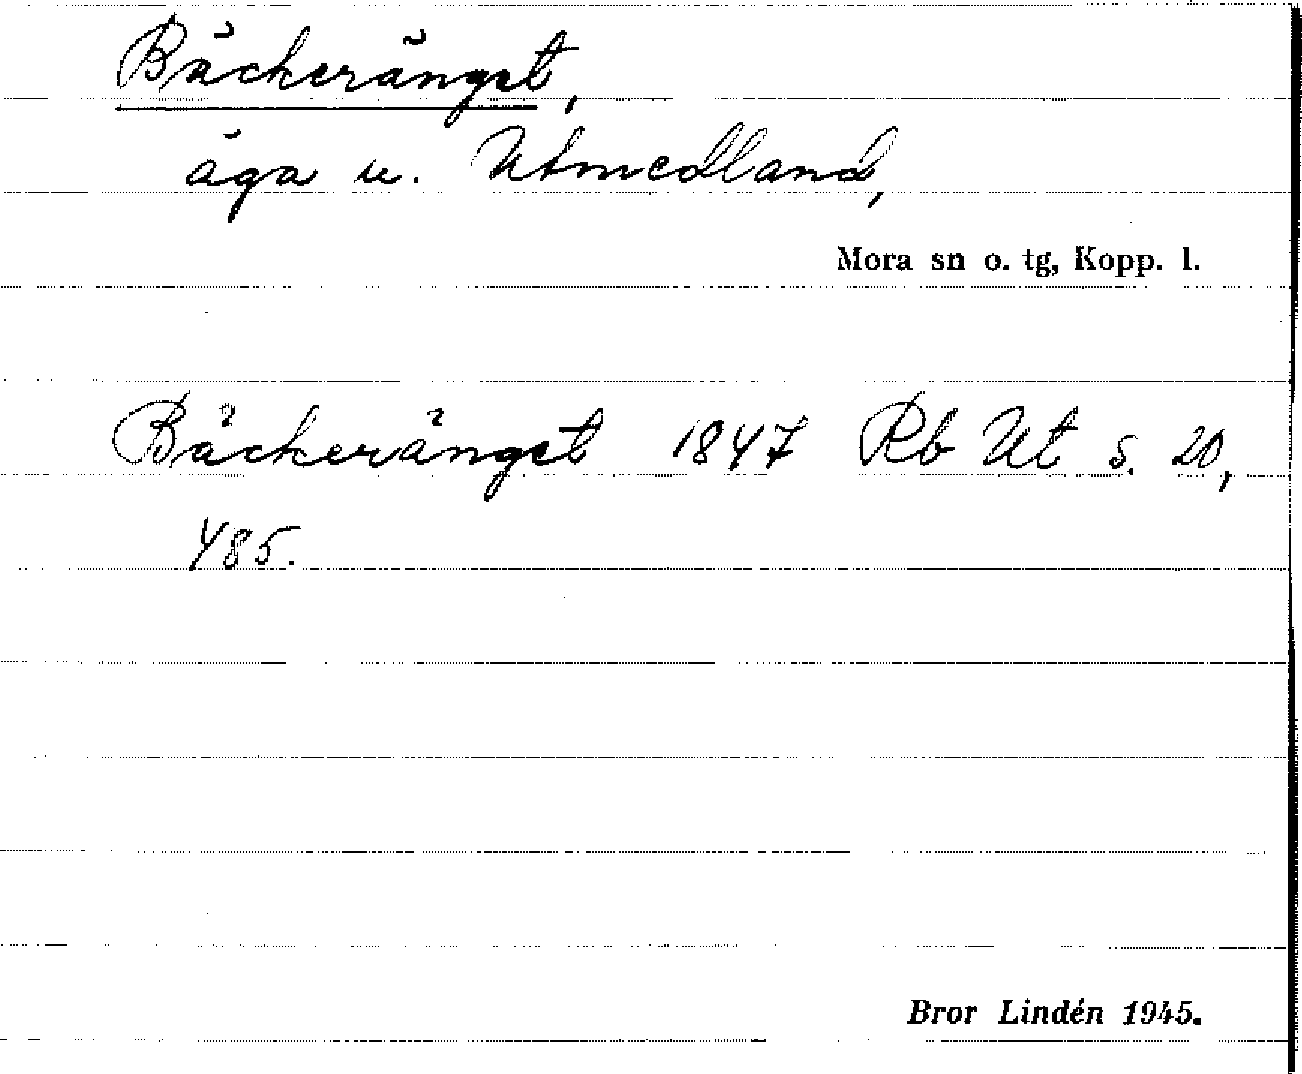 Bäckeränget,
äga u. Utmedland,
Mora sn o. tg, Kopp. l.
Bäckeränget 1847 Rb Ut s. 20,
485.
Bror Lindén 1945.